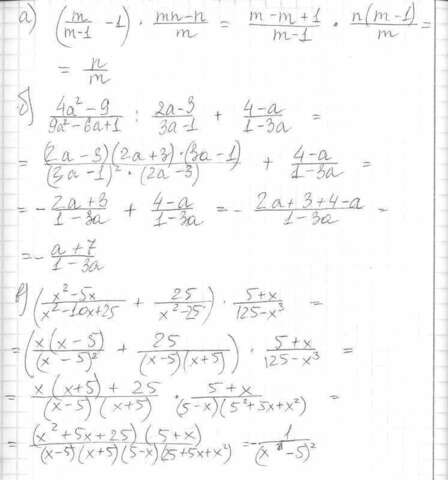 а) (m/(m-1) - 1) · (mn-n)/m = (m-m+1)/(m-1) · n(m-1)/m =
= n/m
б) (4a²-9)/(9a²-6a+1) : (2a-3)/(3a-1) + (4-a)/(1-3a) =
= (2a-3)(2a+3)·(3a-1)/((3a-1)²·(2a-3)) + (4-a)/(1-3a) =
= -(2a+3)/(1-3a) + (4-a)/(1-3a) = -(2a+3+4-a)/(1-3a) =
= -(a+7)/(1-3a)
в) ((x²-5x)/(x²-10x+25) + 25/(x²-25)) · (5+x)/(125-x³) =
= (x(x-5)/(x-5)² + 25/((x-5)(x+5))) · (5+x)/(125-x³) =
= (x(x+5)+25)/((x-5)(x+5)) · (5+x)/((5-x)(5²+5x+x²)) =
= (x²+5x+25)(5+x)/((x-5)(x+5)(5-x)(25+5x+x²)) = -1/(x-5)²